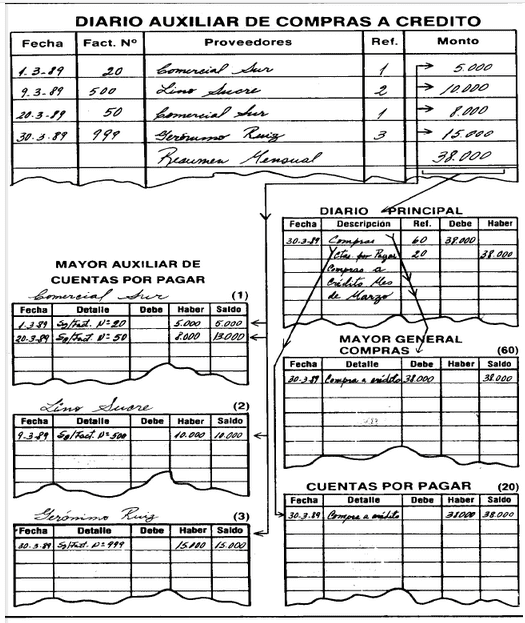 DIARIO AUXILIAR DE COMPRAS A CREDITO
Fecha Fact. Nº Proveedores Ref. Monto
1.3-89 20 Comercial Sur 1 5.000
9.3-89 500 Lino Sucre 2 10.000
20.3-89 50 Comercial Sur 1 8.000
30.3-89 999 Gerónimo Ruiz 3 15.000
Resumen Mensual 38.000
DIARIO PRINCIPAL
Fecha Descripción Ref. Debe Haber
30.3-89 Compras 60 38.000
Ctas. por Pagar 20 38.000
Compras a
Crédito Mes
de Marzo
MAYOR AUXILIAR DE
CUENTAS POR PAGAR
Comercial Sur (1)
Fecha Detalle Debe Haber Saldo
1.3-89 Sg/Fact. Nº 20 5.000 5.000
20.3-89 Sg/Fact. Nº 50 8.000 13.000
Lino Sucre (2)
Fecha Detalle Debe Haber Saldo
9-3.89 Sg/Fact. Nº 500 10.000 10.000
Gerónimo Ruiz (3)
Fecha Detalle Debe Haber Saldo
30.3-89 Sg/Fact. Nº 999 15.000 15.000
MAYOR GENERAL
COMPRAS (60)
Fecha Detalle Debe Haber Saldo
30.3-89 Compra a crédito 38.000 38.000
CUENTAS POR PAGAR (20)
Fecha Detalle Debe Haber Saldo
30-3.89 Compra a crédito 38000 38.000